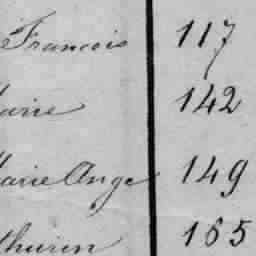 François 117
arie 142
arie Ange 149
thurin 165